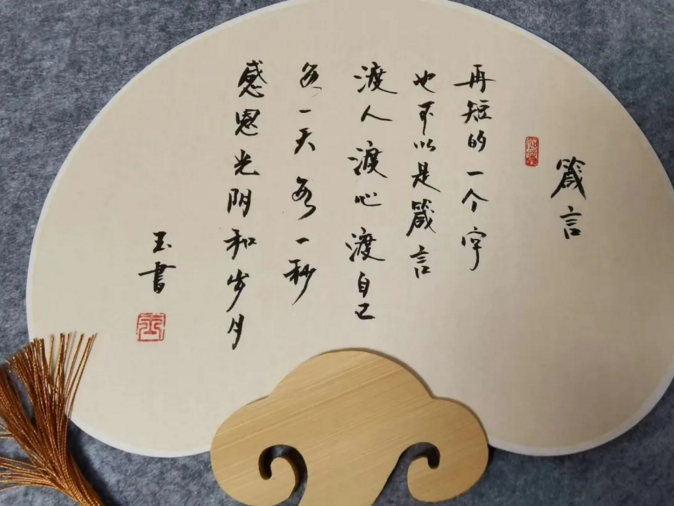 箴言
再短的一个字
也可以是箴言
渡人渡心渡自己
每一天每一秒
感恩光阴和岁月
玉書